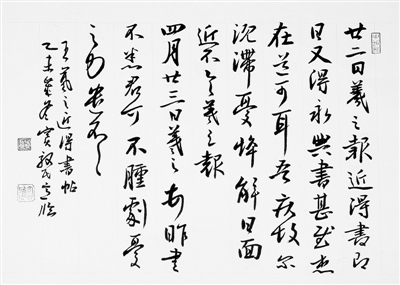 廿二日羲之報近得書即
日又得永興書甚慰想
在道可耳吾疾故爾
沉滯憂悴解日面
近不具羲之報
四月廿三日羲之昨書
不悉君可不腫劇憂
之力遣不一一
王羲之近得書帖
乙未冬臨